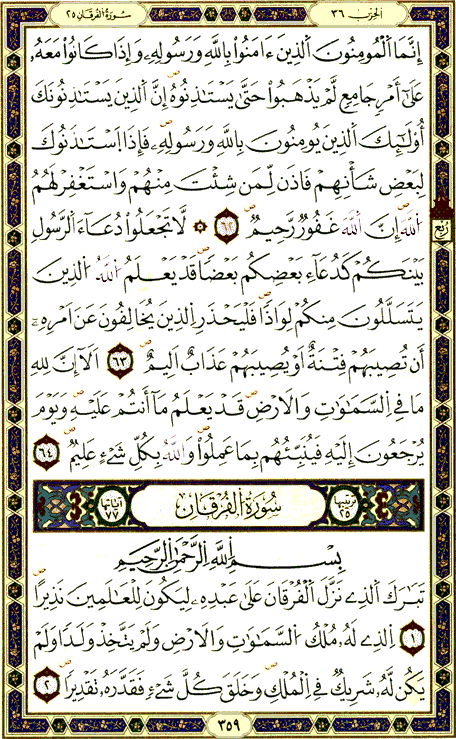 الحزب ٣٦
سورة الفرقان ٢٥
إِنَّمَا اَ۬لْمُومِنُونَ اَ۬لذِينَ ءَامَنُواْ بِاللَّهِ وَرَسُولِهِۦ وَإِذَا كَانُواْ مَعَهُۥ
عَلَىٰٓ أَمْرٖ جَامِعٖ لَّمْ يَذْهَبُواْ حَتَّىٰ يَسْتَٰذِنُوهُ إِنَّ اَ۬لذِينَ يَسْتَٰذِنُونَكَ
أُوْلَٰٓئِكَ اَ۬لذِينَ يُومِنُونَ بِاللَّهِ وَرَسُولِهِۦ فَإِذَا اَ۪سْتَٰذَنُوكَ
لِبَعْضِ شَأْنِهِمْ فَاذَن لِّمَن شِئْتَ مِنْهُمْ وَاسْتَغْفِرْ لَهُمُ
اُ۬للَّهَ إِنَّ اَ۬للَّهَ غَفُورٞ رَّحِيمٞ ٦٢ ۞ لَّا تَجْعَلُواْ دُعَآءَ اَ۬لرَّسُولِ
ربع
بَيْنَكُمْ كَدُعَآءِ بَعْضِكُم بَعْضاٗ قَدْ يَعْلَمُ اُ۬للَّهُ اُ۬لذِينَ
يَتَسَلَّلُونَ مِنكُمْ لِوَاذاٗ فَلْيَحْذَرِ اِ۬لذِينَ يُخَالِفُونَ عَنَ اَمْرِهِۦٓ
أَن تُصِيبَهُمْ فِتْنَةٌ أَوْ يُصِيبَهُمْ عَذَابٌ اَلِيمٌ ٦٣ اَلَآ إِنَّ لِلهِ
مَا فِے اِ۬لسَّمَٰوَٰتِ وَالَارْضِ قَدْ يَعْلَمُ مَآ أَنتُمْ عَلَيْهِ وَيَوْمَ
يُرْجَعُونَ إِلَيْهِ فَيُنَبِّئُهُم بِمَا عَمِلُواْ وَاللَّهُ بِكُلِّ شَےْءٍ عَلِيمٞ ٦٤
ترتيبها ٢٥ سُورَةُ الْفُرْقَانِ آياتها ٧٧
بِسْمِ اِ۬للَّهِ اِ۬لرَّحْمَٰنِ اِ۬لرَّحِيمِ
تَبَٰرَكَ اَ۬لذِے نَزَّلَ اَ۬لْفُرْقَانَ عَلَىٰ عَبْدِهِۦ لِيَكُونَ لِلْعَٰلَمِينَ نَذِيراً
١ اِ۬لذِے لَهُۥ مُلْكُ اُ۬لسَّمَٰوَٰتِ وَالَارْضِ وَلَمْ يَتَّخِذْ وَلَداٗ وَلَمْ
يَكُن لَّهُۥ شَرِيكٞ فِے اِ۬لْمُلْكِ وَخَلَقَ كُلَّ شَےْءٖ فَقَدَّرَهُۥ تَقْدِيراٗ ٢
٣٥٩